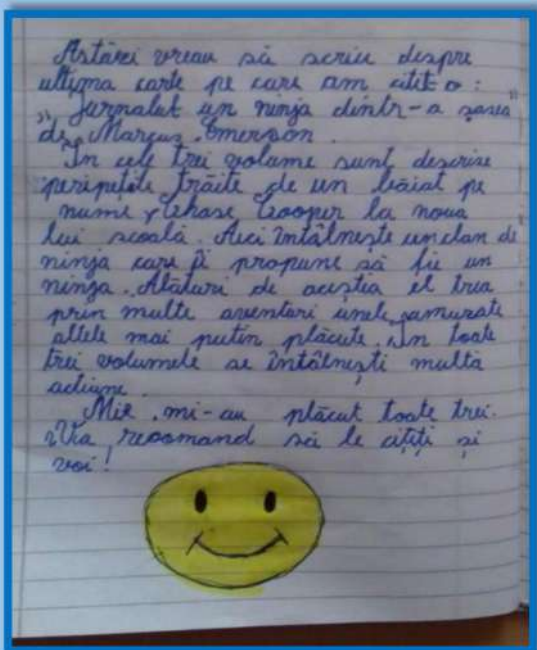 Astăzi vreau să scriu despre
ultima carte pe care am citit-o:
„Jurnalul un ninja dintr-a șasea”
de Marcus Emerson.
În cele trei volume sunt descrise
peripețiile trăite de un băiat pe
nume Chase Cooper la noua
lui școală. Aici întâlnește un clan de
ninja care îi propune să fie un
ninja. Alături de aceștia el trea
prin multe aventuri unele amuzate
altele mai puțin plăcute. În toate
trei volumele se întâlnești multă
acțiune.
Mie mi-au plăcut toate trei.
Vă recomand să le citiți și
voi!